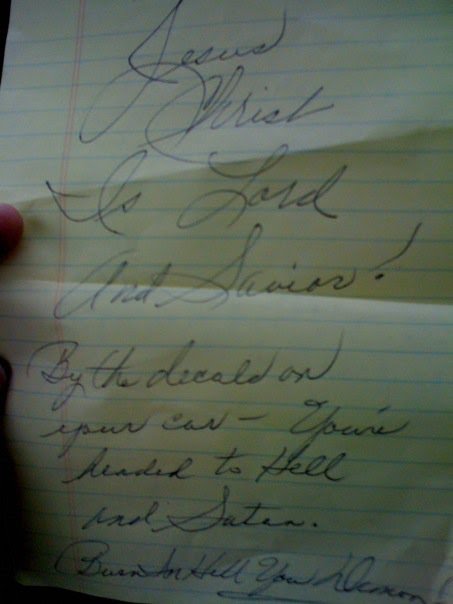 Jesus
Christ
Is Lord
And Savior!
By the decald on
your car - You're
headed to Hell
and Satan.
(Burn In Hell You Demon